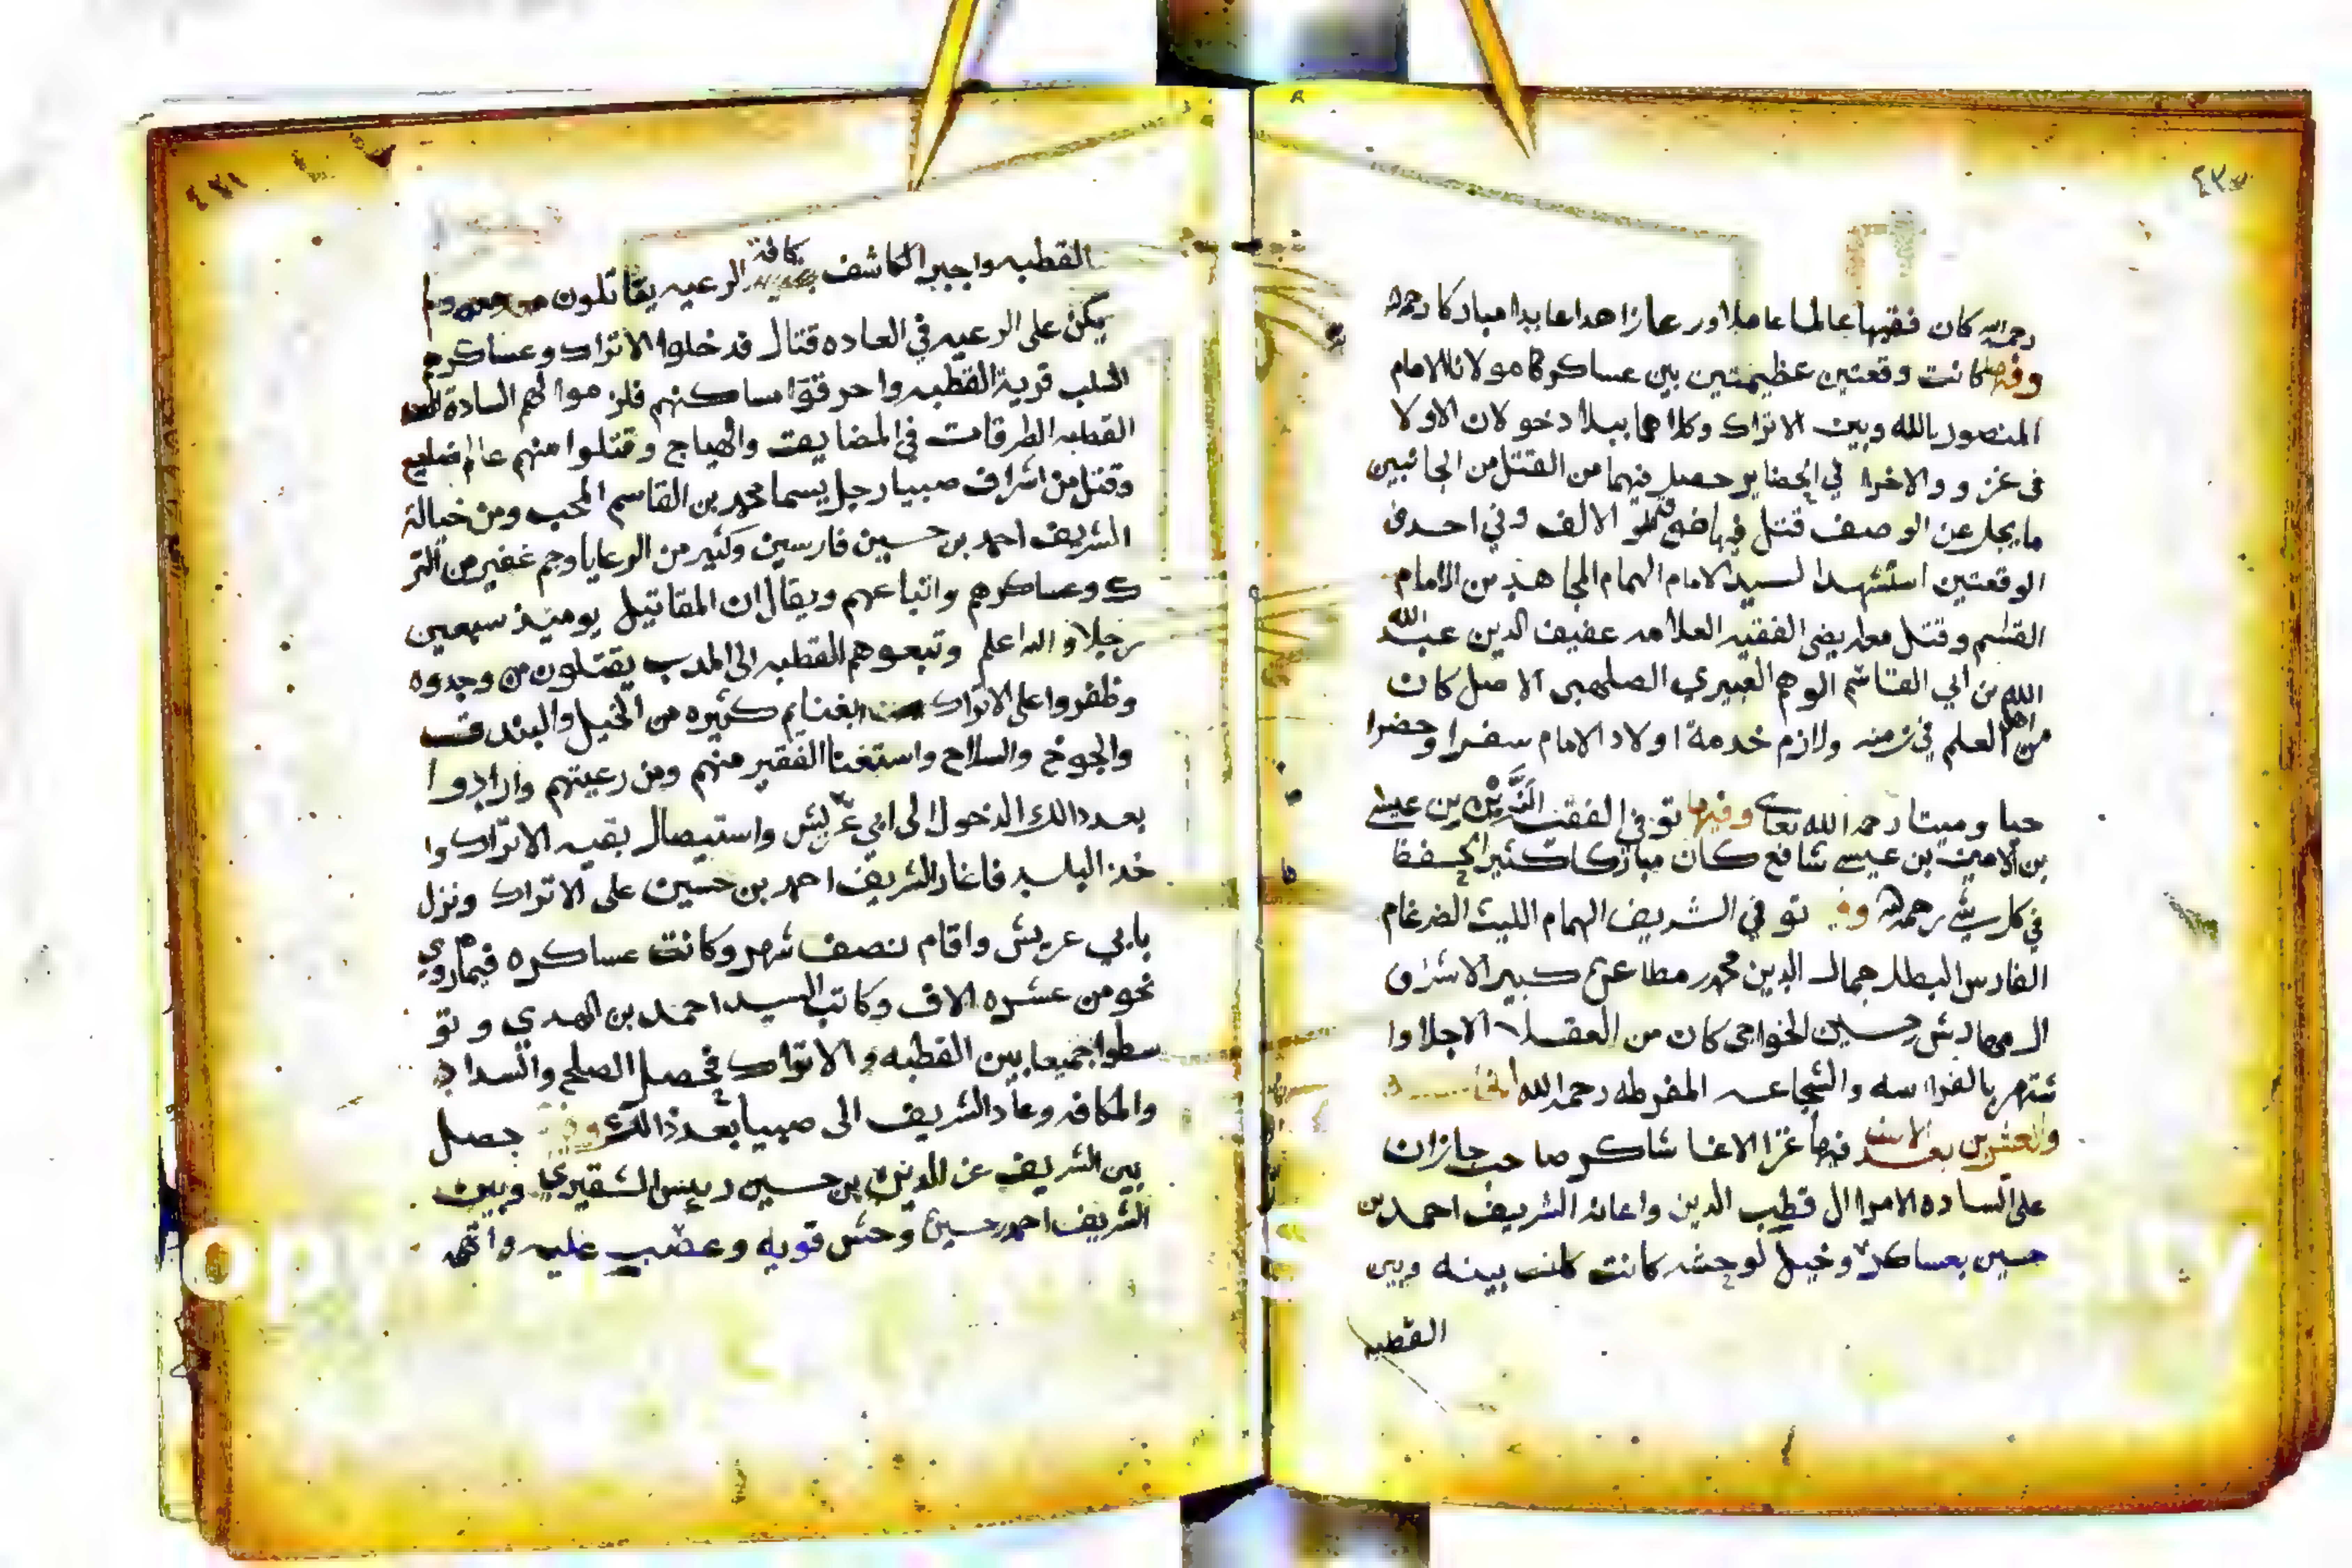 رحمه الله كان فقيها عالما عاملا ورعا زاهدا عابدا مباركا رحمه الله
وفيها كانت وقعتين عظيمتين بين عساكر مولانا الامام
المنصور بالله وبين الاتراك وكلاهما ببلاد خولان الاولا
في غزو والاخرا في الحضاير حصل فيهما من القتل من الجانبين
ما يجل عن الوصف قتل فيها الالف وفي احدى
الوقعتين استشهد السيد الامام الهمام المجاهد بن الامام
القسم وقتل معه الفقيه العلامه عفيف الدين عبد الله
الله بن ابي القاسم العبيري الصلهبي الاصل كان
من اهل العلم في زمنه ولازم خدمة اولاد الامام سفرا وحضرا
حيا وميتا رحمه الله تعا وفيها توفي الفقيه الزين بن عيسى
بن الامين بن عيسى شافع كان مباركا كثير التحفظ
في كل شي رحمه الله وفيها توفي الشريف الهمام الليث الضرغام
الفارس البطل جمال الدين محمد مطاعن كبير الاشراف
المهادش حسين الخواجي كان من العقلا الاجلا وا
شتهر بالفراسه والشجاعه المفرطه رحمه الله
والعشرين بعد الالف فيها غزا الاغا شاكر صاحب جازان
على الساده الامرا ال قطب الدين واعانه الشريف احمد بن
حسين بعساكر وخيل لوحشه كانت كانت بينه وبين
القطبه
القطبه واجبر الكاشف كافة الرعيه يقاتلون معه ولم
يكن على الرعيه في العاده قتال فدخلوا الاتراك وعساكرهم
السلب قرية القطبه واحرقوا مساكنهم فلزموا لهم السادة
القطبه الطرقات في المضايف والهياج وقتلوا منهم عالم
وقتل من اشراف صبيا رجل يسما محمد بن القاسم المحب ومن خيالة
الشريف احمد بن حسين فارسين وكثير من الرعايا وجم غفير من التر
ك وعساكرهم واتباعهم ويقال ان المقاتيل يومئذ سبعين
رجلا والله اعلم وتبعوهم القطبه الى المدب يقتلون من وجدوه
وظفروا على الاتراك بغنايم كثيره من الخيل والبندق
والجوخ والسلاح واستغنا الفقير منهم ومن رعيتهم وارادوا
بعد ذالك الدخول الى ابي عريش واستيصال بقيه الاتراك وا
خذ البلد فاغار الشريف احمد بن حسين على الاتراك ونزل
بابي عريش واقام نصف شهر وكانت عساكره فيما روي
نحو من عشره الاف وكاتب السيد احمد بن المهدي وتو
سطوا جميعا بين القطبه والاتراك فحصل الصلح والسداد
والمكافه وعاد الشريف الى صبيا بعد ذالك وفيها حصل
بين الشريف عز الدين بن حسين رييس الشقيري وبين
الشريف احمد حسين وحش قويه وعصب عليه واتهم